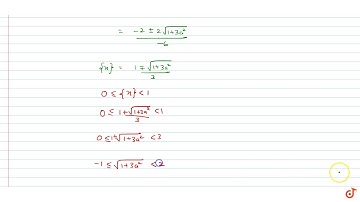 = -2 ± 2√1+3a² / -6
{x} = 1 ∓ √1+3a² / 3
0 ≤ {x} < 1
0 ≤ 1+√1+3a² / 3 < 1
0 ≤ 1+√1+3a² < 3
-1 ≤ √1+3a² < 2